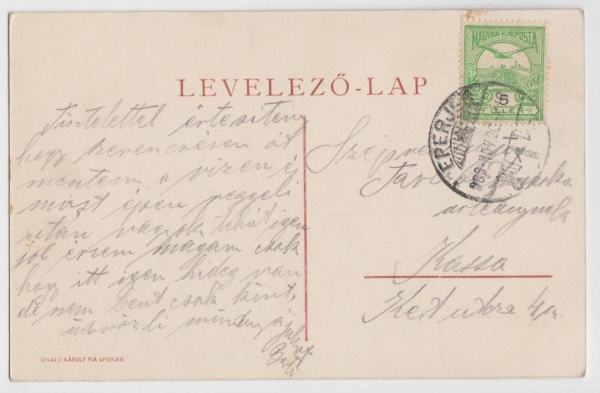 LEVELEZŐ-LAP
MAGYAR KIR. POSTA
5
EPERJES
Tisztelettel értesítem
hogy szerencsésen át
mentem a vizen és
most épen reggeli
után vagyok tehát igen
jól érzem magam csak
hogy itt igen hideg van
de nem bent csak kint,
üdvözli mindnyájukat
Tar
Kassa
Kert utcza 4 sz.
DIVALD KÁROLY FIA EPERJES